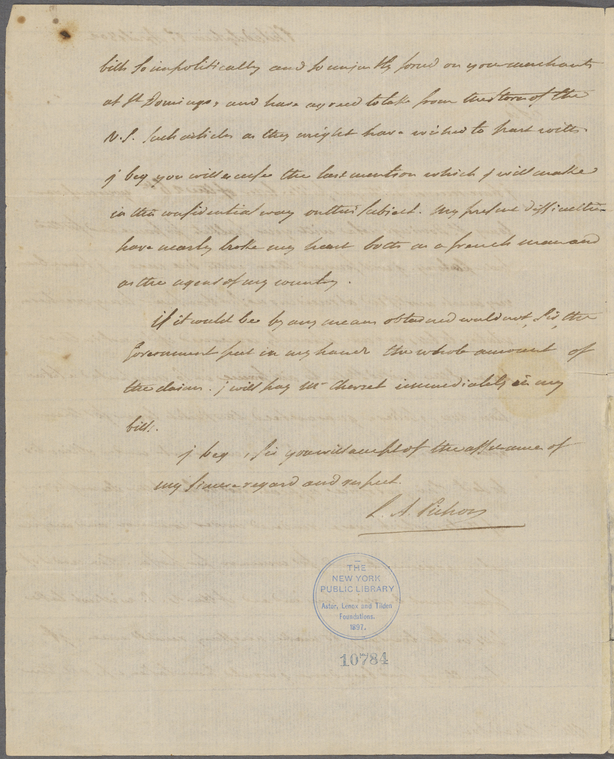 bills so impolitically and so unjustly forced on your merchants
at St. Domingo, and have agreed to take from the stores of the
U.S. such articles as they might have wished to part with.
j beg you will excuse the last mention which j will make
in this confidential way on this subject. My present difficulties
have nearly broke my heart both as a french man and
as the agent of my country.
if it could be by any means obtained would not, Sir, the
Government put in my hands the whole amount of
the claim. j will pay Mr. immediately in my
bills.
j beg, Sir you will accept of the assurance of
my sincere regard and respect.
L. A. Pichon
THE
NEW YORK
PUBLIC LIBRARY
Astor, Lenox and Tilden
Foundations.
1897.
10784